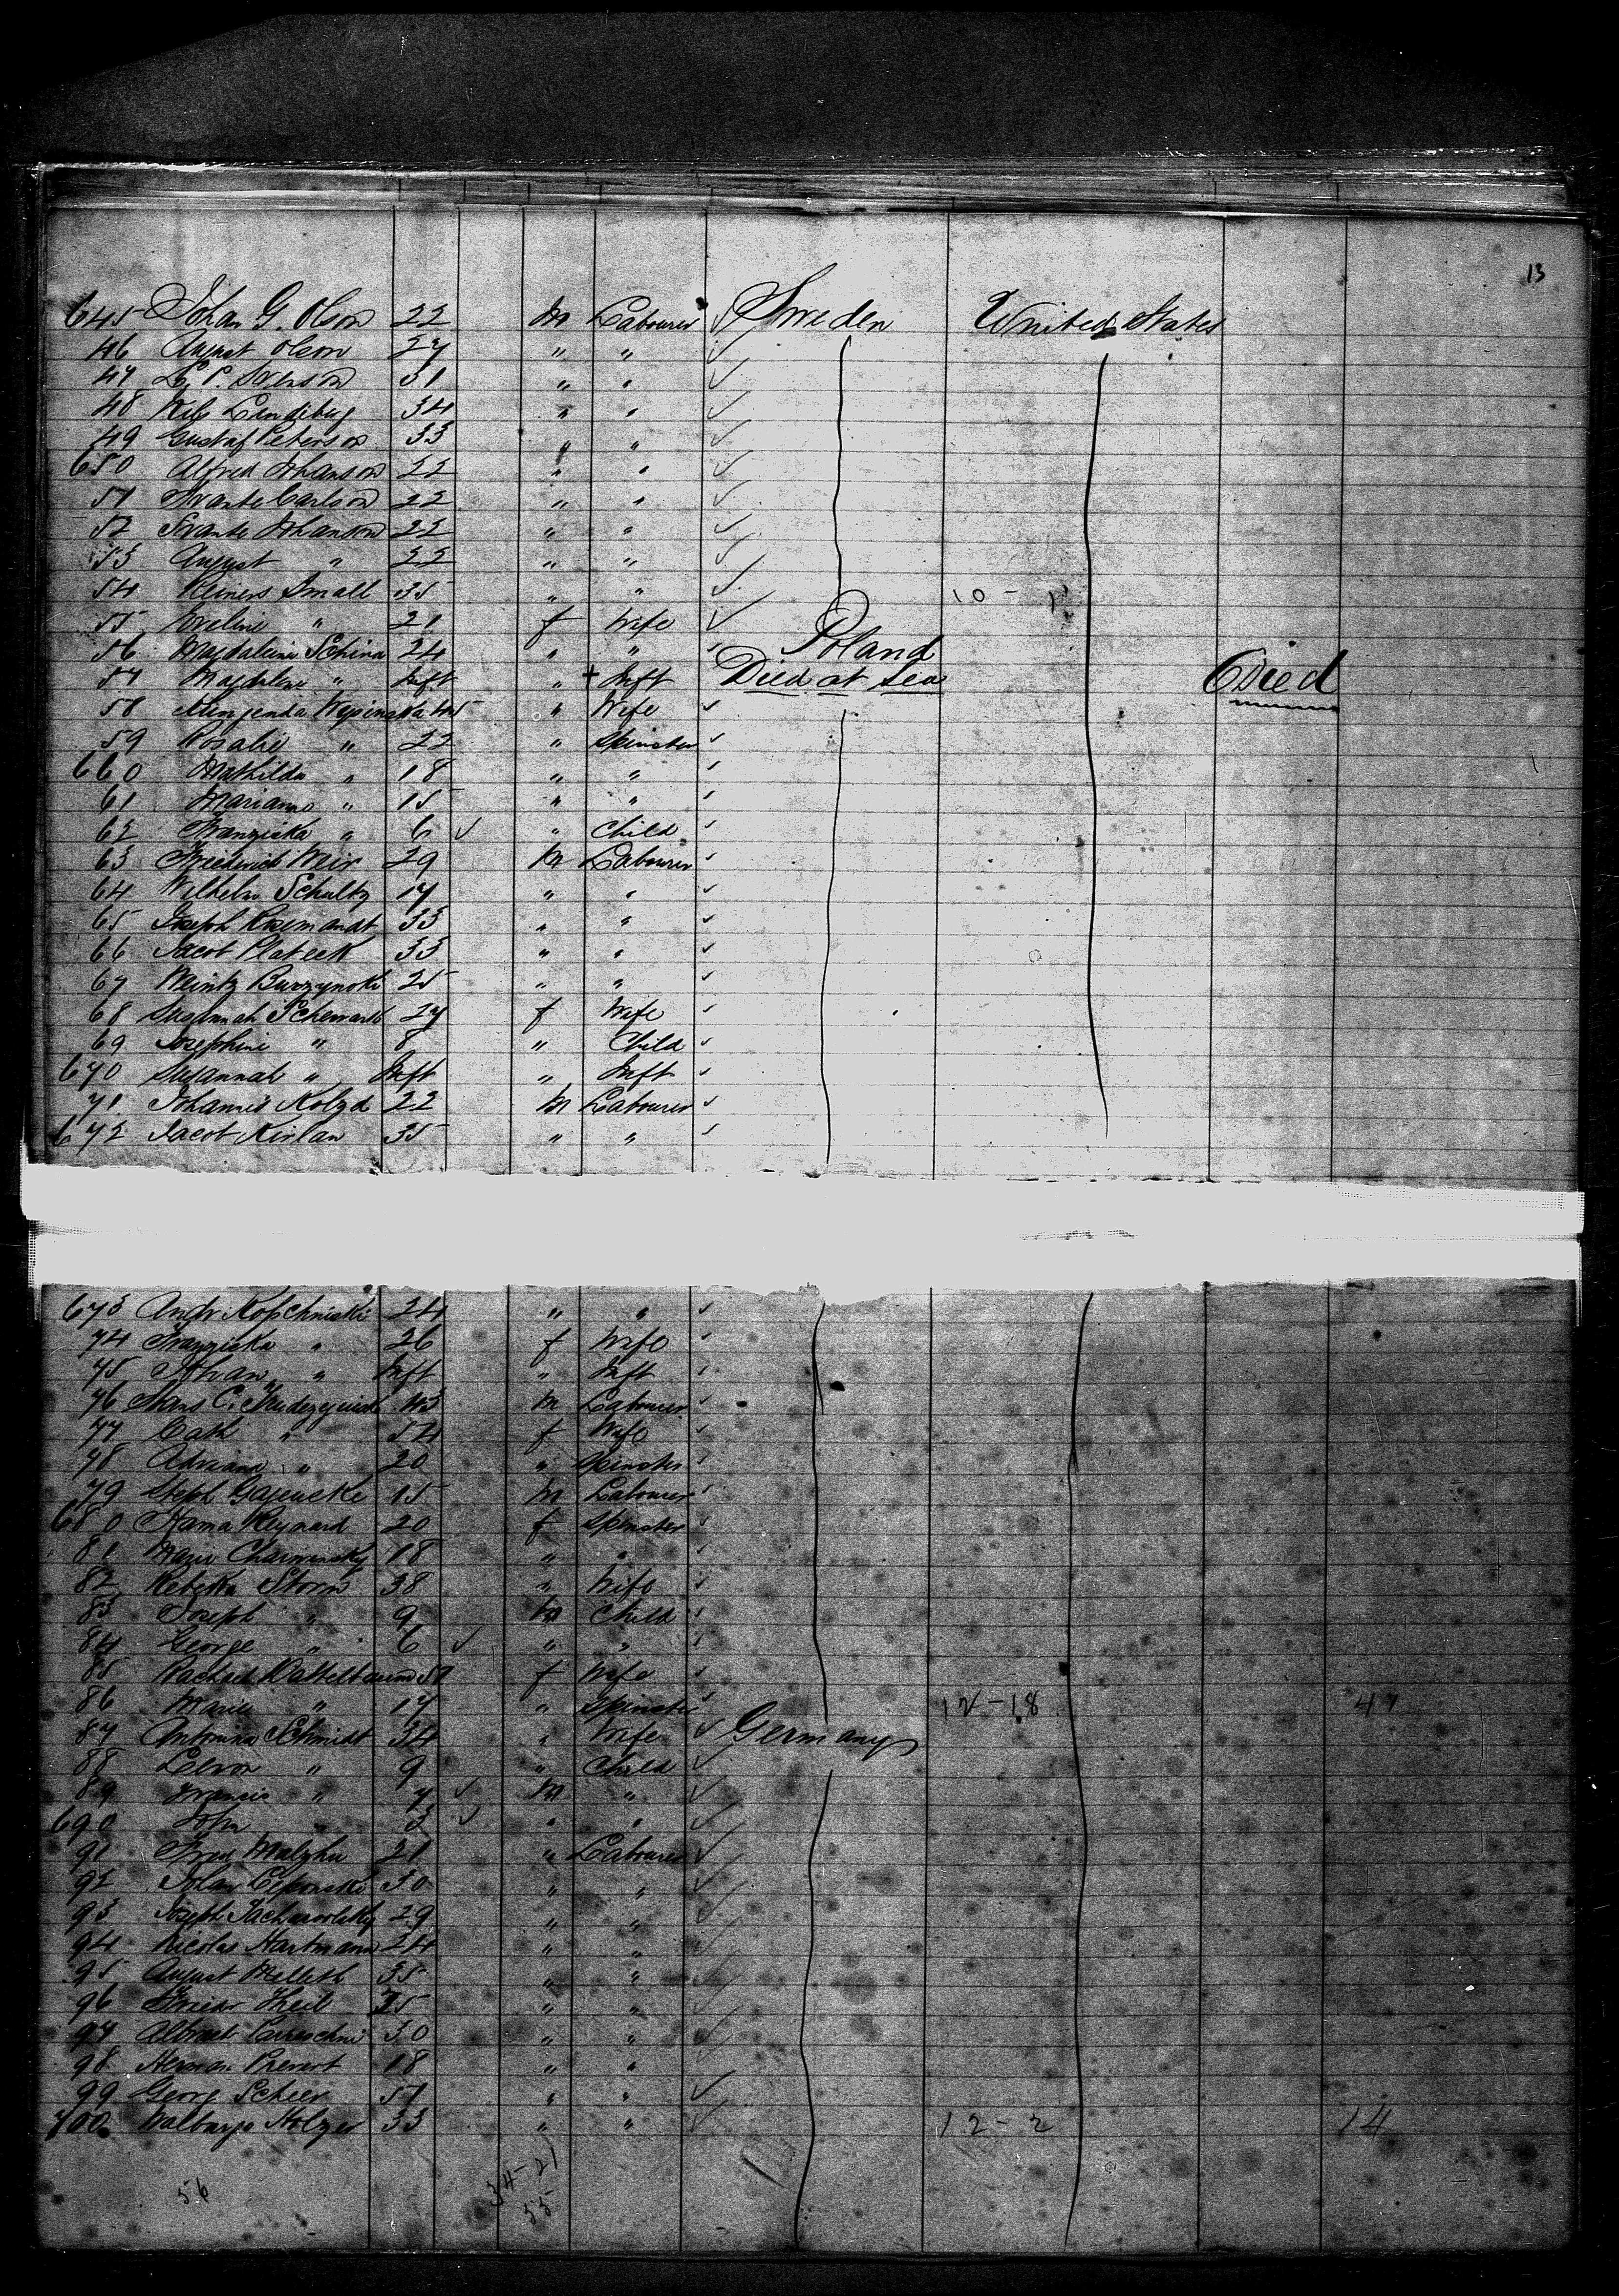 13
645 Johan G. Olson 22 m Labourer ✓ Sweden United States
46 August Olson 27 " " ✓
47 L. P. Swenson 31 " " ✓
48 Nils Lindeburg 34 " " ✓
49 Gustaf Peterson 33 " " ✓
650 Alfred Johanson 22 " " ✓
51 Svante Carlson 22 " " ✓
52 Svante Johanson 22 " " ✓
53 August " 22 " " ✓
54 Reiners Small 35 " " ✓ 10 -
55 Eveline " 21 f Wife ✓
56 Magdaleine Schina 24 " " ✓ Poland
57 Magdalene " Inft " + Inft Died at Sea Died
58 Wypinska " Wife ✓
59 Rosalie " 22 " Spinster ✓
660 Mathilda " 18 " " ✓
61 Marianna " 15 " " ✓
62 Franziska " 6 ✓ " Child ✓
63 Friederich Meix 29 m Labourer ✓
64 Wilhelm Schultz 17 " " ✓
65 Joseph Rosemandt 33 " " ✓
66 Jacob Plateek 33 " " ✓
67 Burzynski 25 " " ✓
68 Susannah Schewarls 27 f Wife ✓
69 Josephine " 8 " Child ✓
670 Susannah " Inft " Inft ✓
71 Johannes Kolzd 22 m Labourer ✓
672 Jacob Kirlan 35 " " ✓
673 Andr Kopchniski 24 " " ✓
74 Franziska " 26 f Wife ✓
75 Johan " Inft " Inft ✓
76 Hans C. 43 m Labourer ✓
77 Cath " 54 f Wife ✓
78 Adriana " 20 " Spinster ✓
79 Steph Gajewske 15 m Labourer ✓
680 Keynard 20 f Spinster ✓
81 Marie Charwinsky 18 " " ✓
82 Rebekka Storm 38 " Wife ✓
83 Joseph " 9 m Child ✓
84 George " 6 ✓ " " ✓
85 Rachael Dattelbaum 51 f Wife ✓
86 Marie " 17 " Spinster ✓ 12-18 47
87 Antonina Schmidt 34 " Wife ✓ Germany
88 " 9 " Child ✓
89 Francis " 7 ✓ m " ✓
690 John " 3 ✓ " " ✓
91 Malzhu 21 " Labourer ✓
92 Johan Leponski 30 " " ✓
93 Joseph 29 " " ✓
94 Nicolas Hartmann 24 " " ✓
95 August Melleth 35 " " ✓
96 Theil 25 " " ✓
97 30 " " ✓
98 Herman Prevort 18 " " ✓
99 Georg Scheer 51 " " ✓
700 Walburga Holzer 33 " " ✓ 12-2 14
56 34-21
55